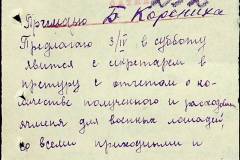 Примарю Б Кореника
Предлагаю 3/IV в субботу
явится с секретарем в
претуру с отчетом о ко-
личестве полученного и расходов.
ячменя для военных лошадей,
со всеми приходными и